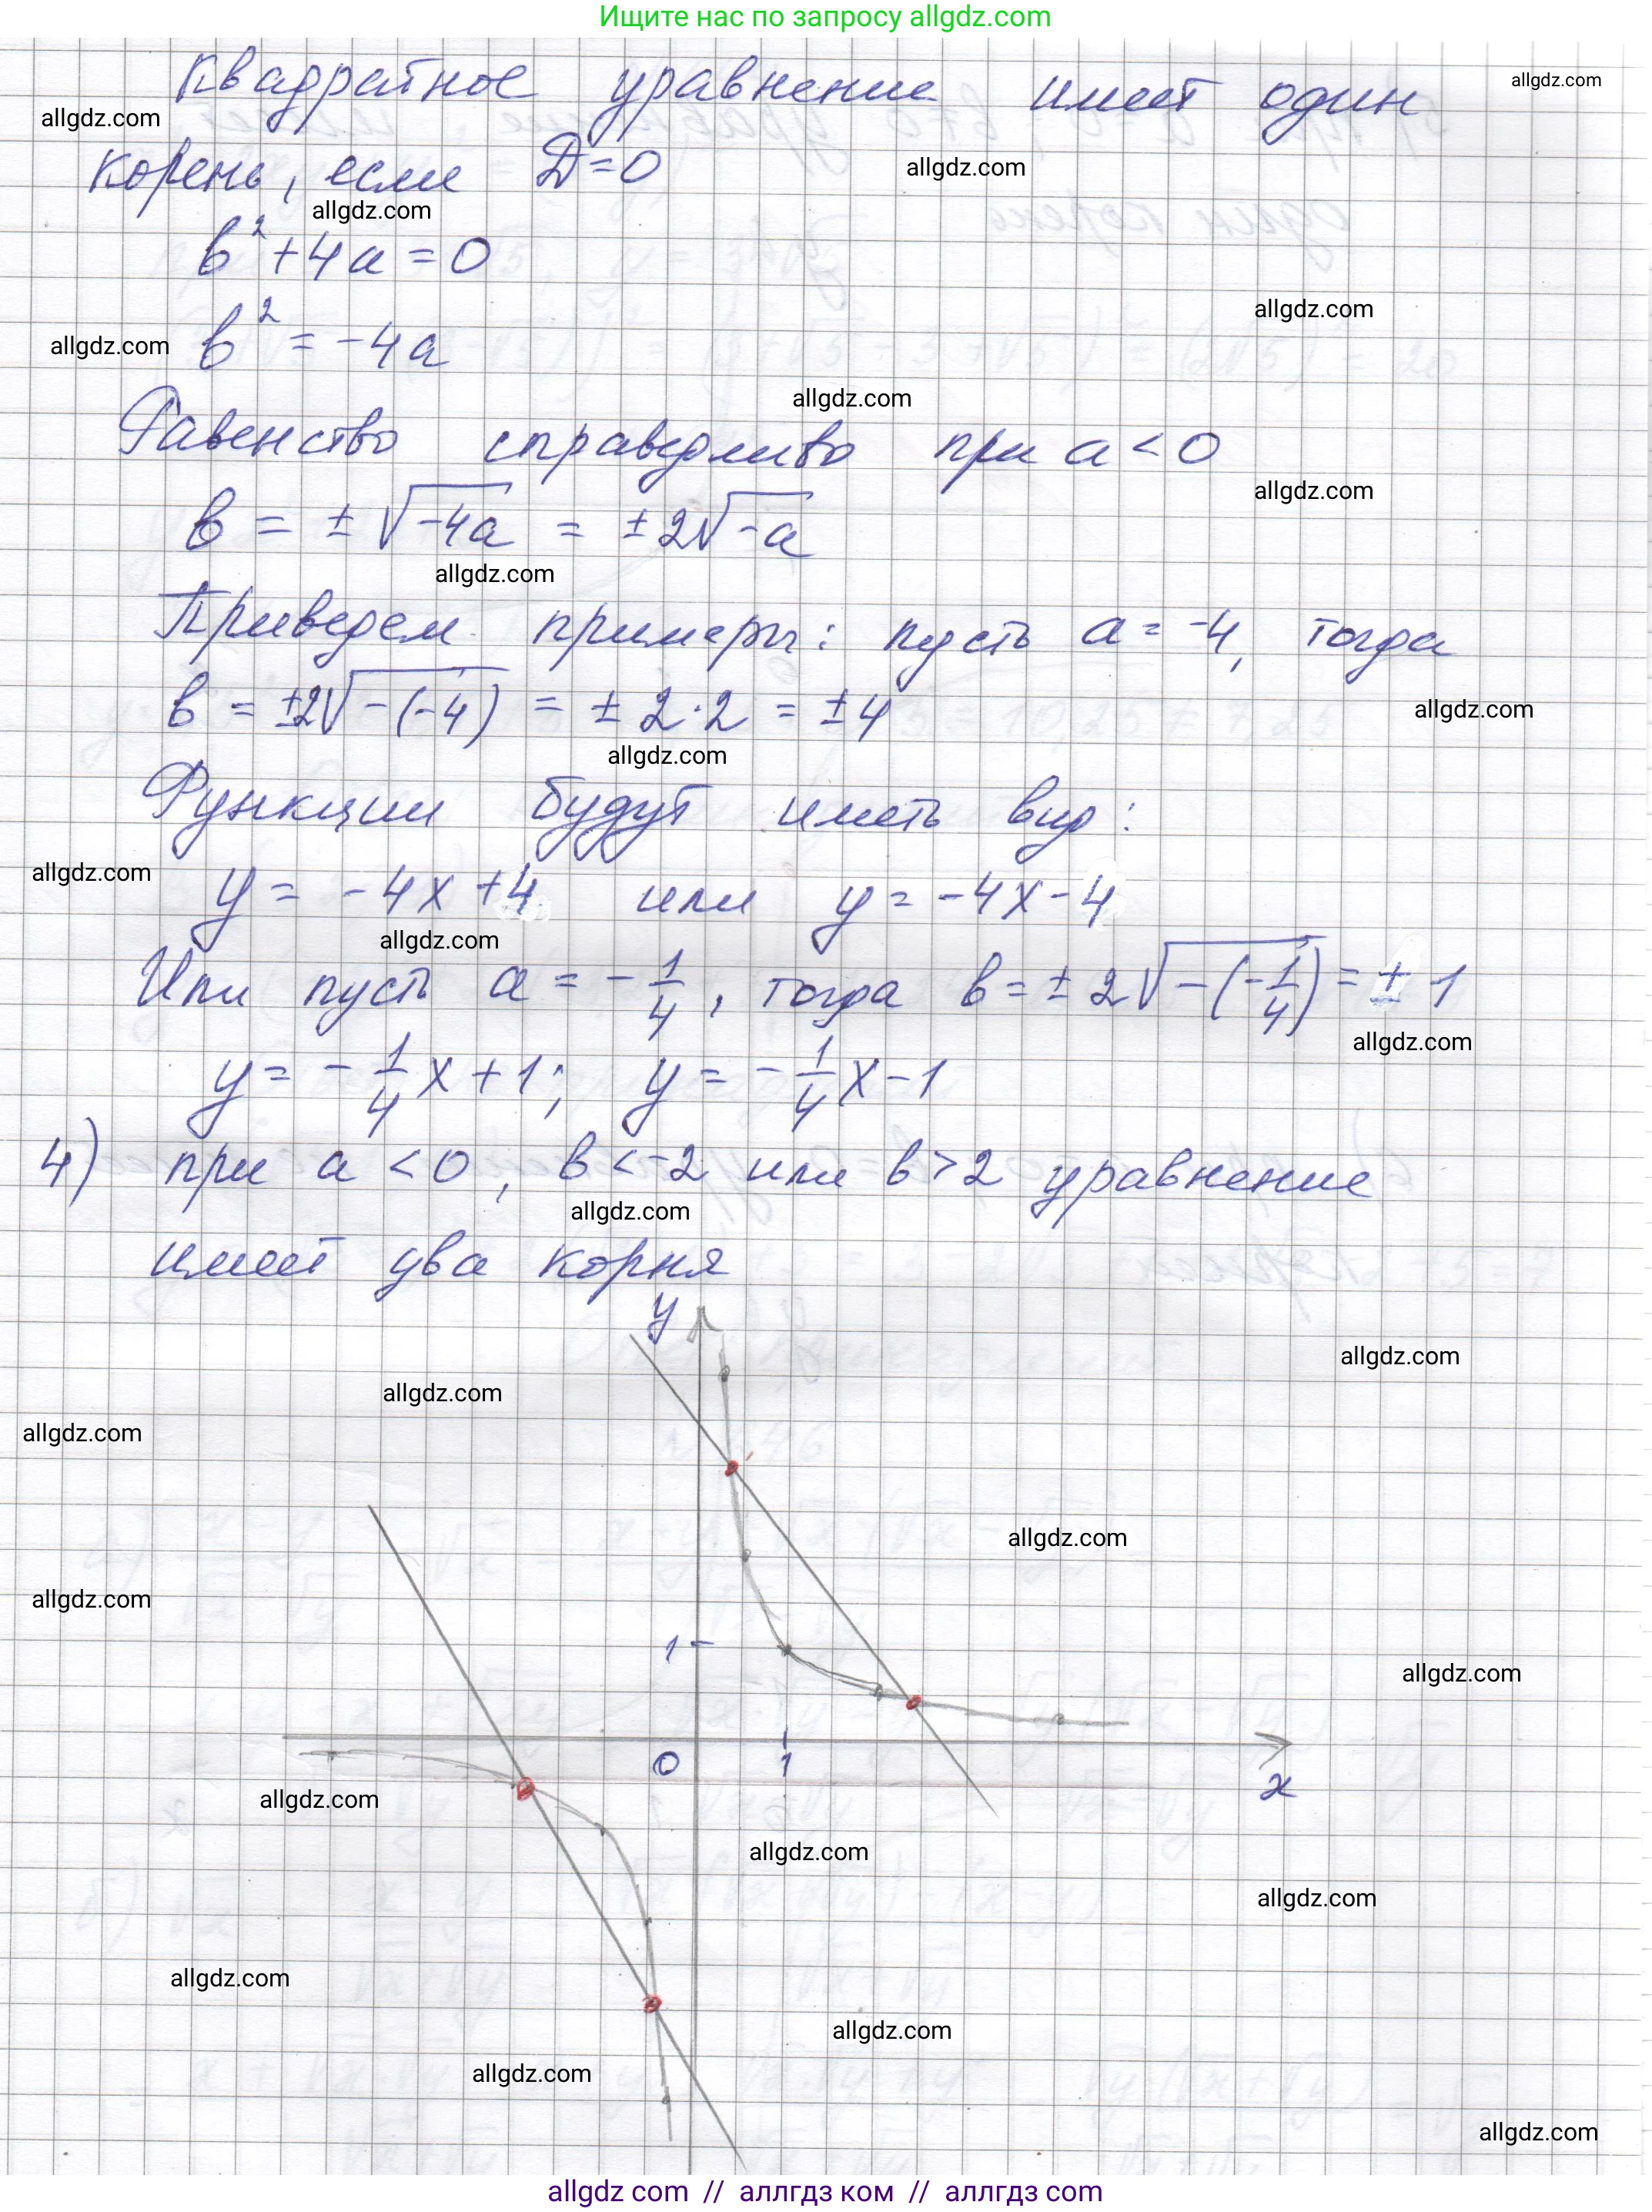 Ищите нас по запросу allgdz.com
Квадратное уравнение имеет один
allgdz.com
allgdz.com
корень, если D=0
allgdz.com
allgdz.com
в² + 4a = 0
allgdz.com
в² = -4a
allgdz.com
allgdz.com
Равенство справедливо при a < 0
allgdz.com
в = ± √-4a = ± 2√-a
allgdz.com
Приведем примеры: пусть a = -4, тогда
в = ±2√-(-4) = ± 2·2 = ±4
allgdz.com
allgdz.com
Функции будут иметь вид:
allgdz.com
y = -4x +4 или y = -4x-4
allgdz.com
Или пусть a = -1/4, тогда в = ± 2√-(-1/4) = ± 1
allgdz.com
y = -1/4x+1; y = -1/4x-1
4) при a < 0, в < -2 или в > 2 уравнение
allgdz.com
имеет два корня
y
allgdz.com
allgdz.com
allgdz.com
allgdz.com
allgdz.com
1
allgdz.com
0 1
x
allgdz.com
allgdz.com
allgdz.com
allgdz.com
allgdz.com
allgdz.com
allgdz.com
allgdz com // аллгдз ком // аллгдз com